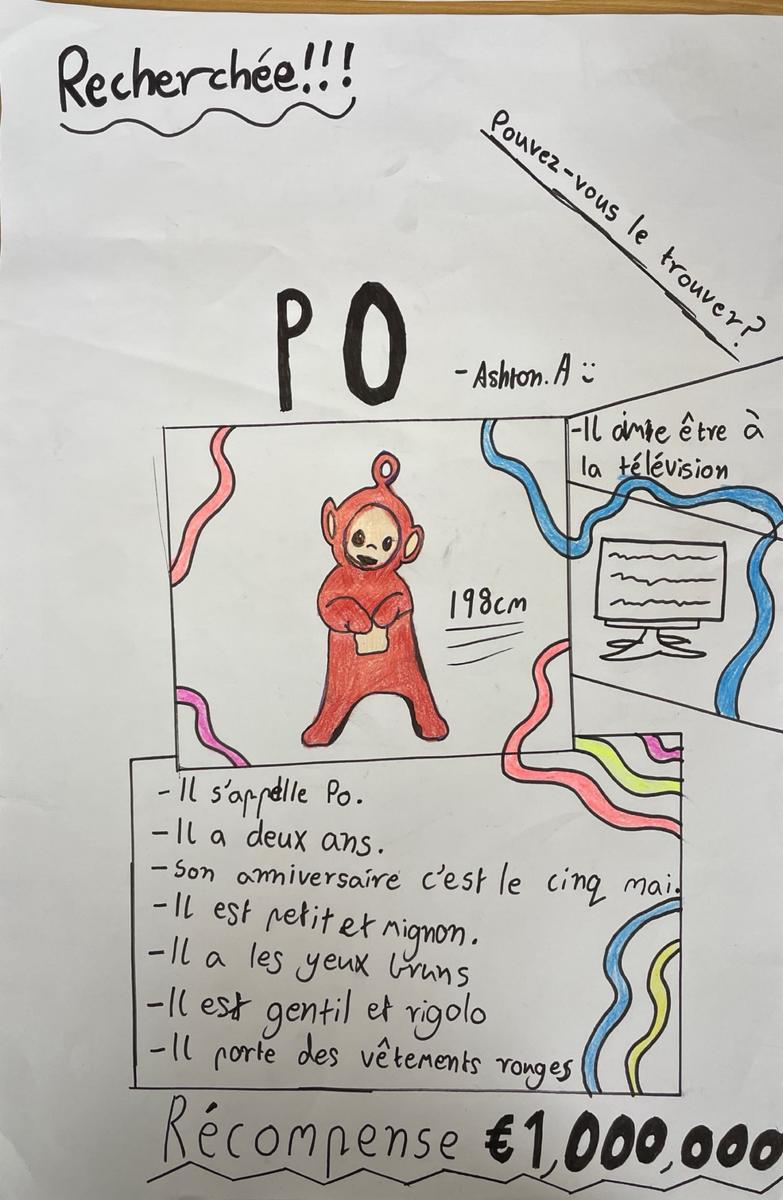 Recherchée!!!
Pouvez-vous le trouver?
PO
- Ashton. A
-Il aime être à
la télévision
198cm
-Il s'appelle Po.
-Il a deux ans.
-Son anniversaire c'est le cinq mai.
-Il est petit et mignon.
-Il a les yeux bruns
-Il est gentil et rigolo
-Il porte des vêtements rouges
Récompense €1,000,000